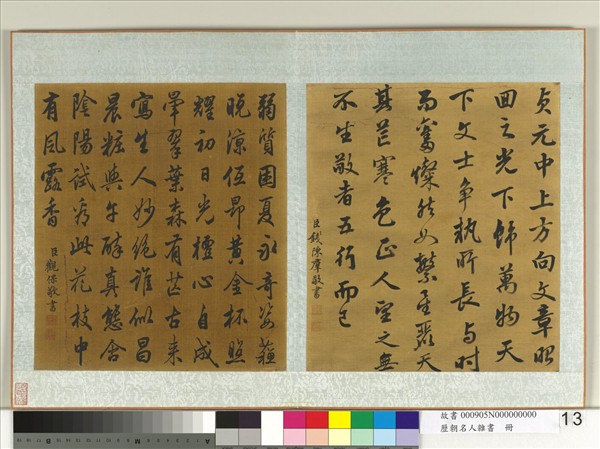 貞元中上方向文章昭
回之光下飾萬物天
下文士爭執所長與時
而奮燦然如繁星麗天
其芒寒色正人望之無
不生敬者五行而已
臣錢陳羣敬書
弱質困夏永奇姿蘓
晚涼低昂黃金杯照
耀初日光檀心自成
暈翠葉森有芒古来
寫生人妙絕誰似昌
晨粧與午醉真態含
陰陽試看此花枝中
有風露香
臣觀保敬書
故書 000905N000000000
歷朝名人雜書 冊
13